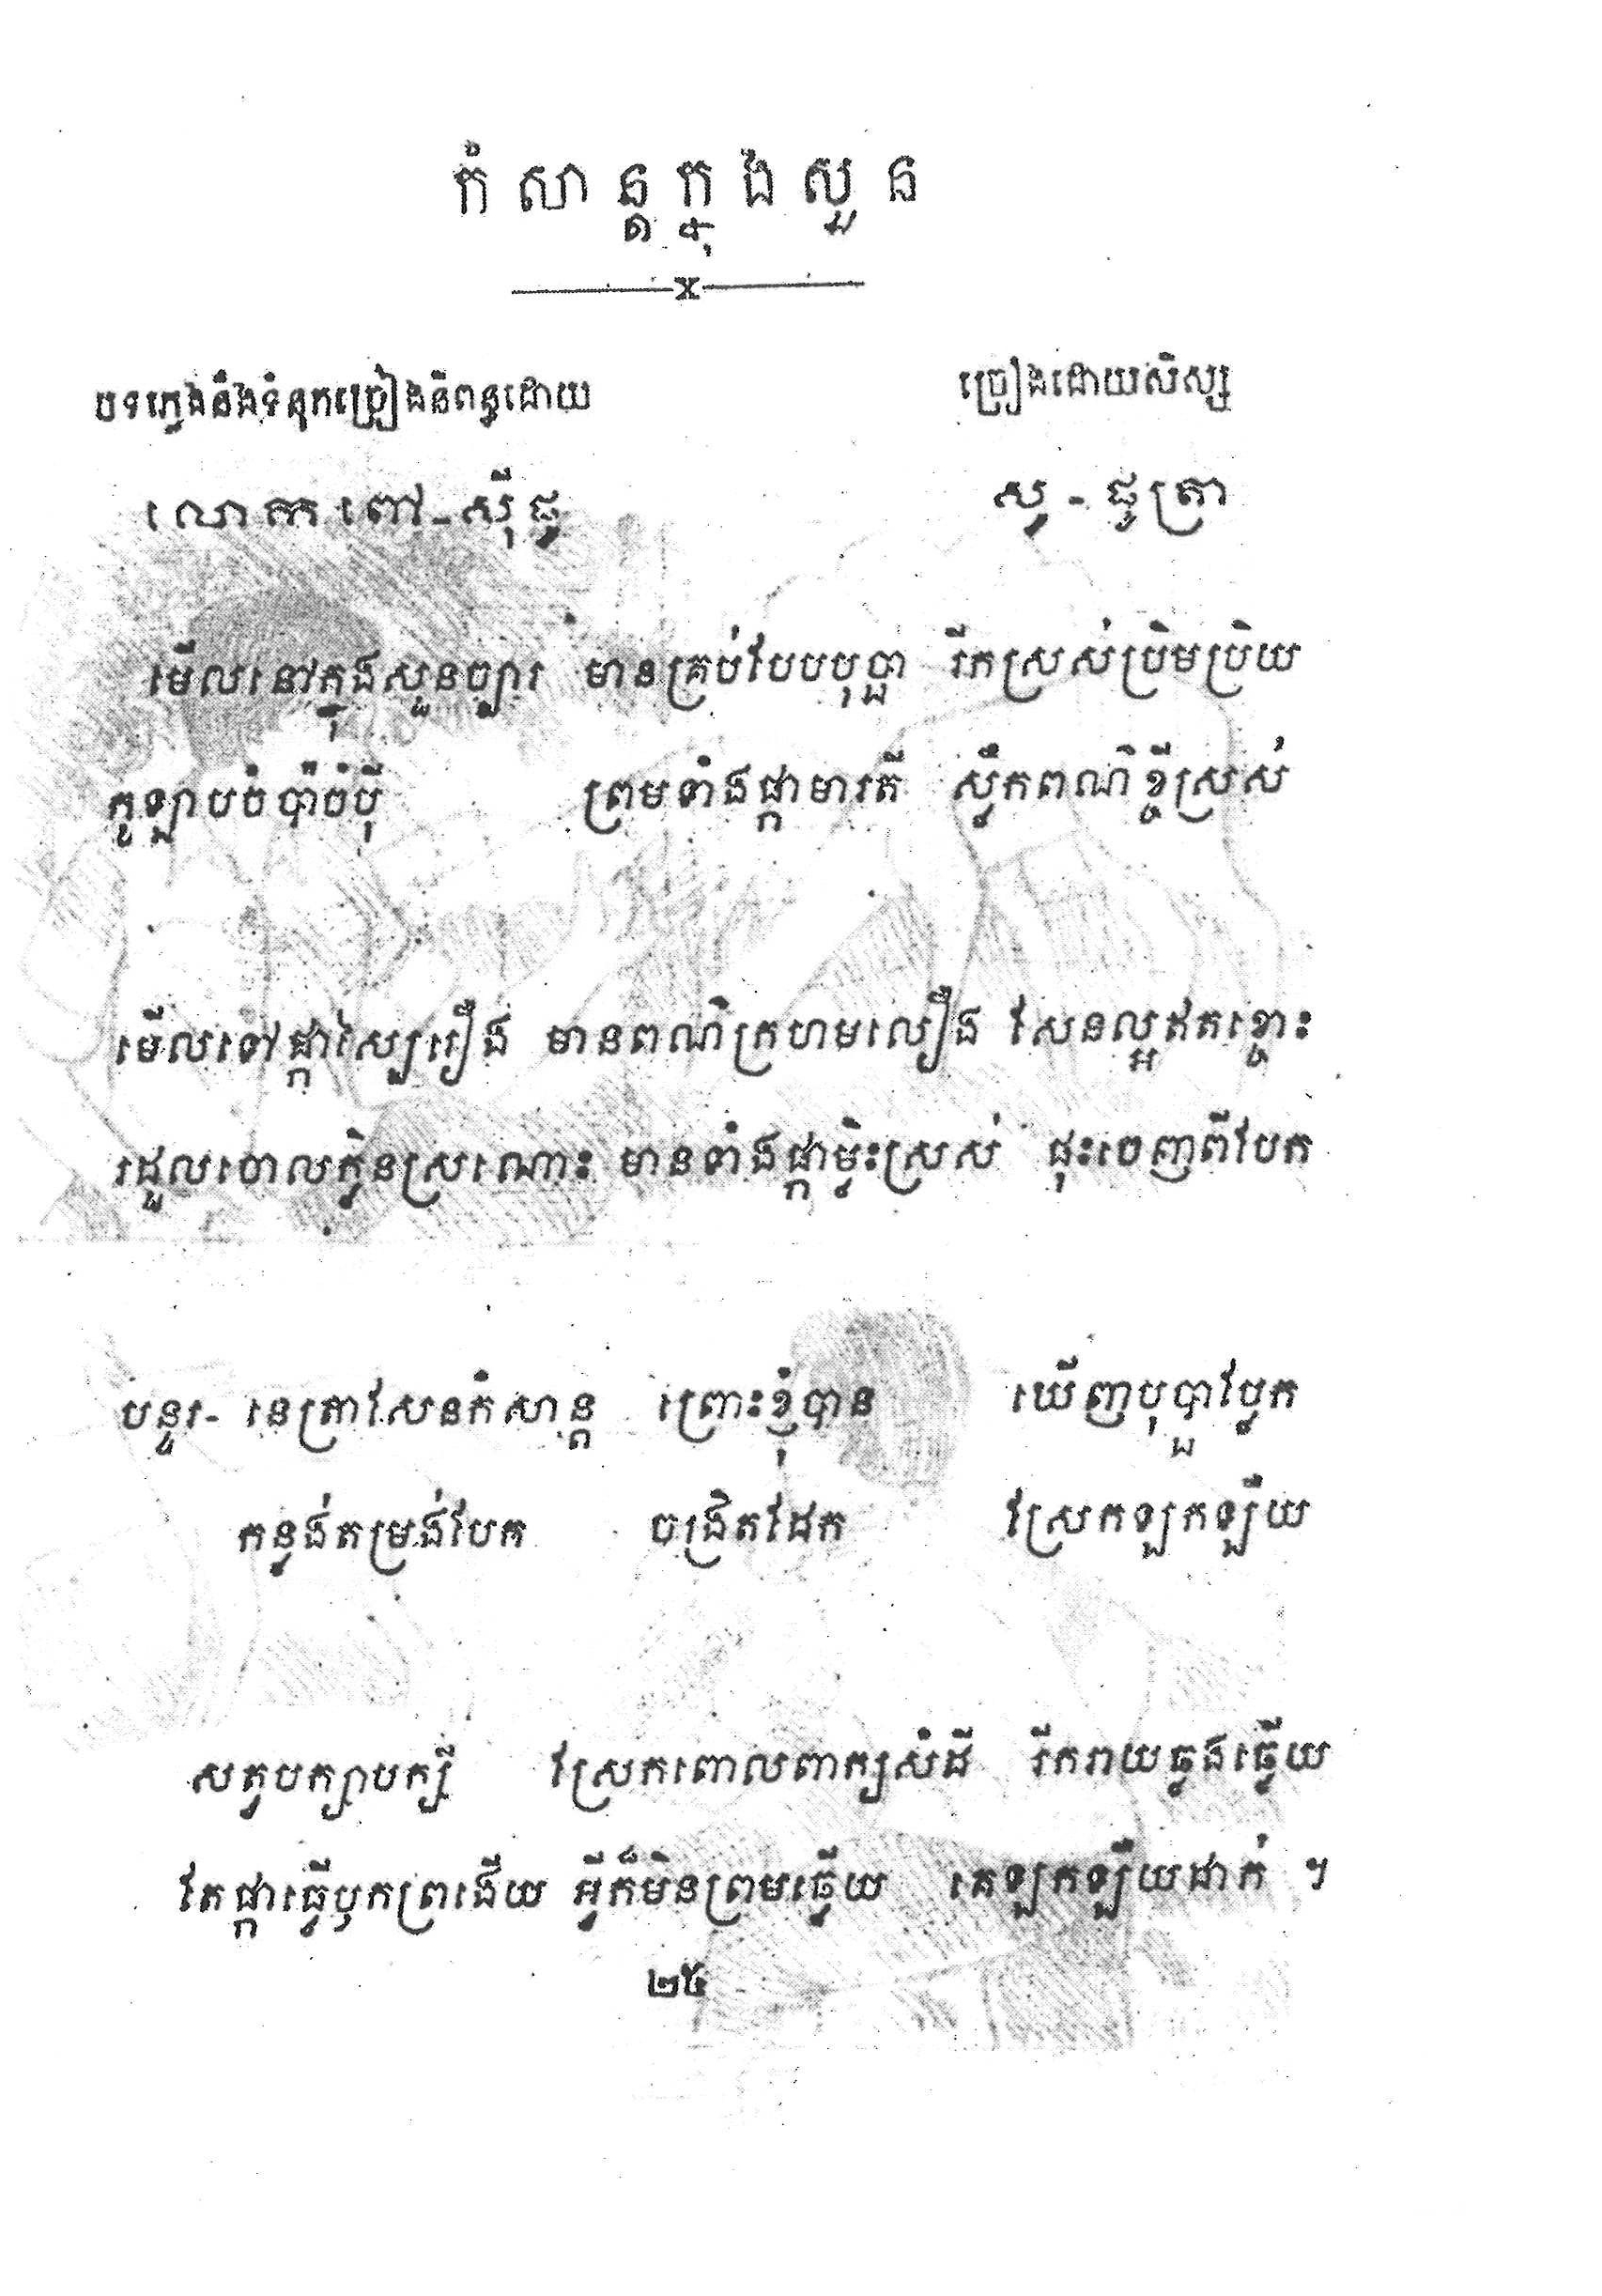 កំសាន្តក្នុងសួន
បទភ្លេងនឹងទំនុកច្រៀងនិពន្ធដោយ ច្រៀងដោយសិស្ស
លោក ពៅ-ស៊ីផូ សូ - ផូត្រា
មើលនៅក្នុងសួនច្បារ មានគ្រប់បែបបុប្ផា រីកស្រស់ប្រិមប្រិយ
កូឡាបចំប៉ាចំប៉ី ព្រមទាំងផ្កាមារតី ស្លឹកពណ៌ខ្ចីស្រស់
មើលទៅផ្កាស្បៃរឿង មានពណ៌ក្រហមលឿង សែនល្អឥតខ្ចោះ
រដួលចោលក្លិនស្រណោះ មានទាំងផ្កាម្លិះស្រស់ ផុះចេញពីបែក
បន្ទរ- នេត្រាសែនកំសាន្ត ព្រោះខ្ញុំបាន ឃើញបុប្ផាប្លែក
កន្ទង់តម្រង់បែក ចង្រិតដែក ស្រែកឡូកឡឺយ
សត្វបក្សាបក្សី ស្រែកពោលពាក្យសំដី រីករាយឆ្លងឆ្លើយ
តែផ្កាធ្វើឫកព្រងើយ អ្វីក៏មិនព្រមឆ្លើយ គេឡូកឡឺយដាក់ ។
២៥